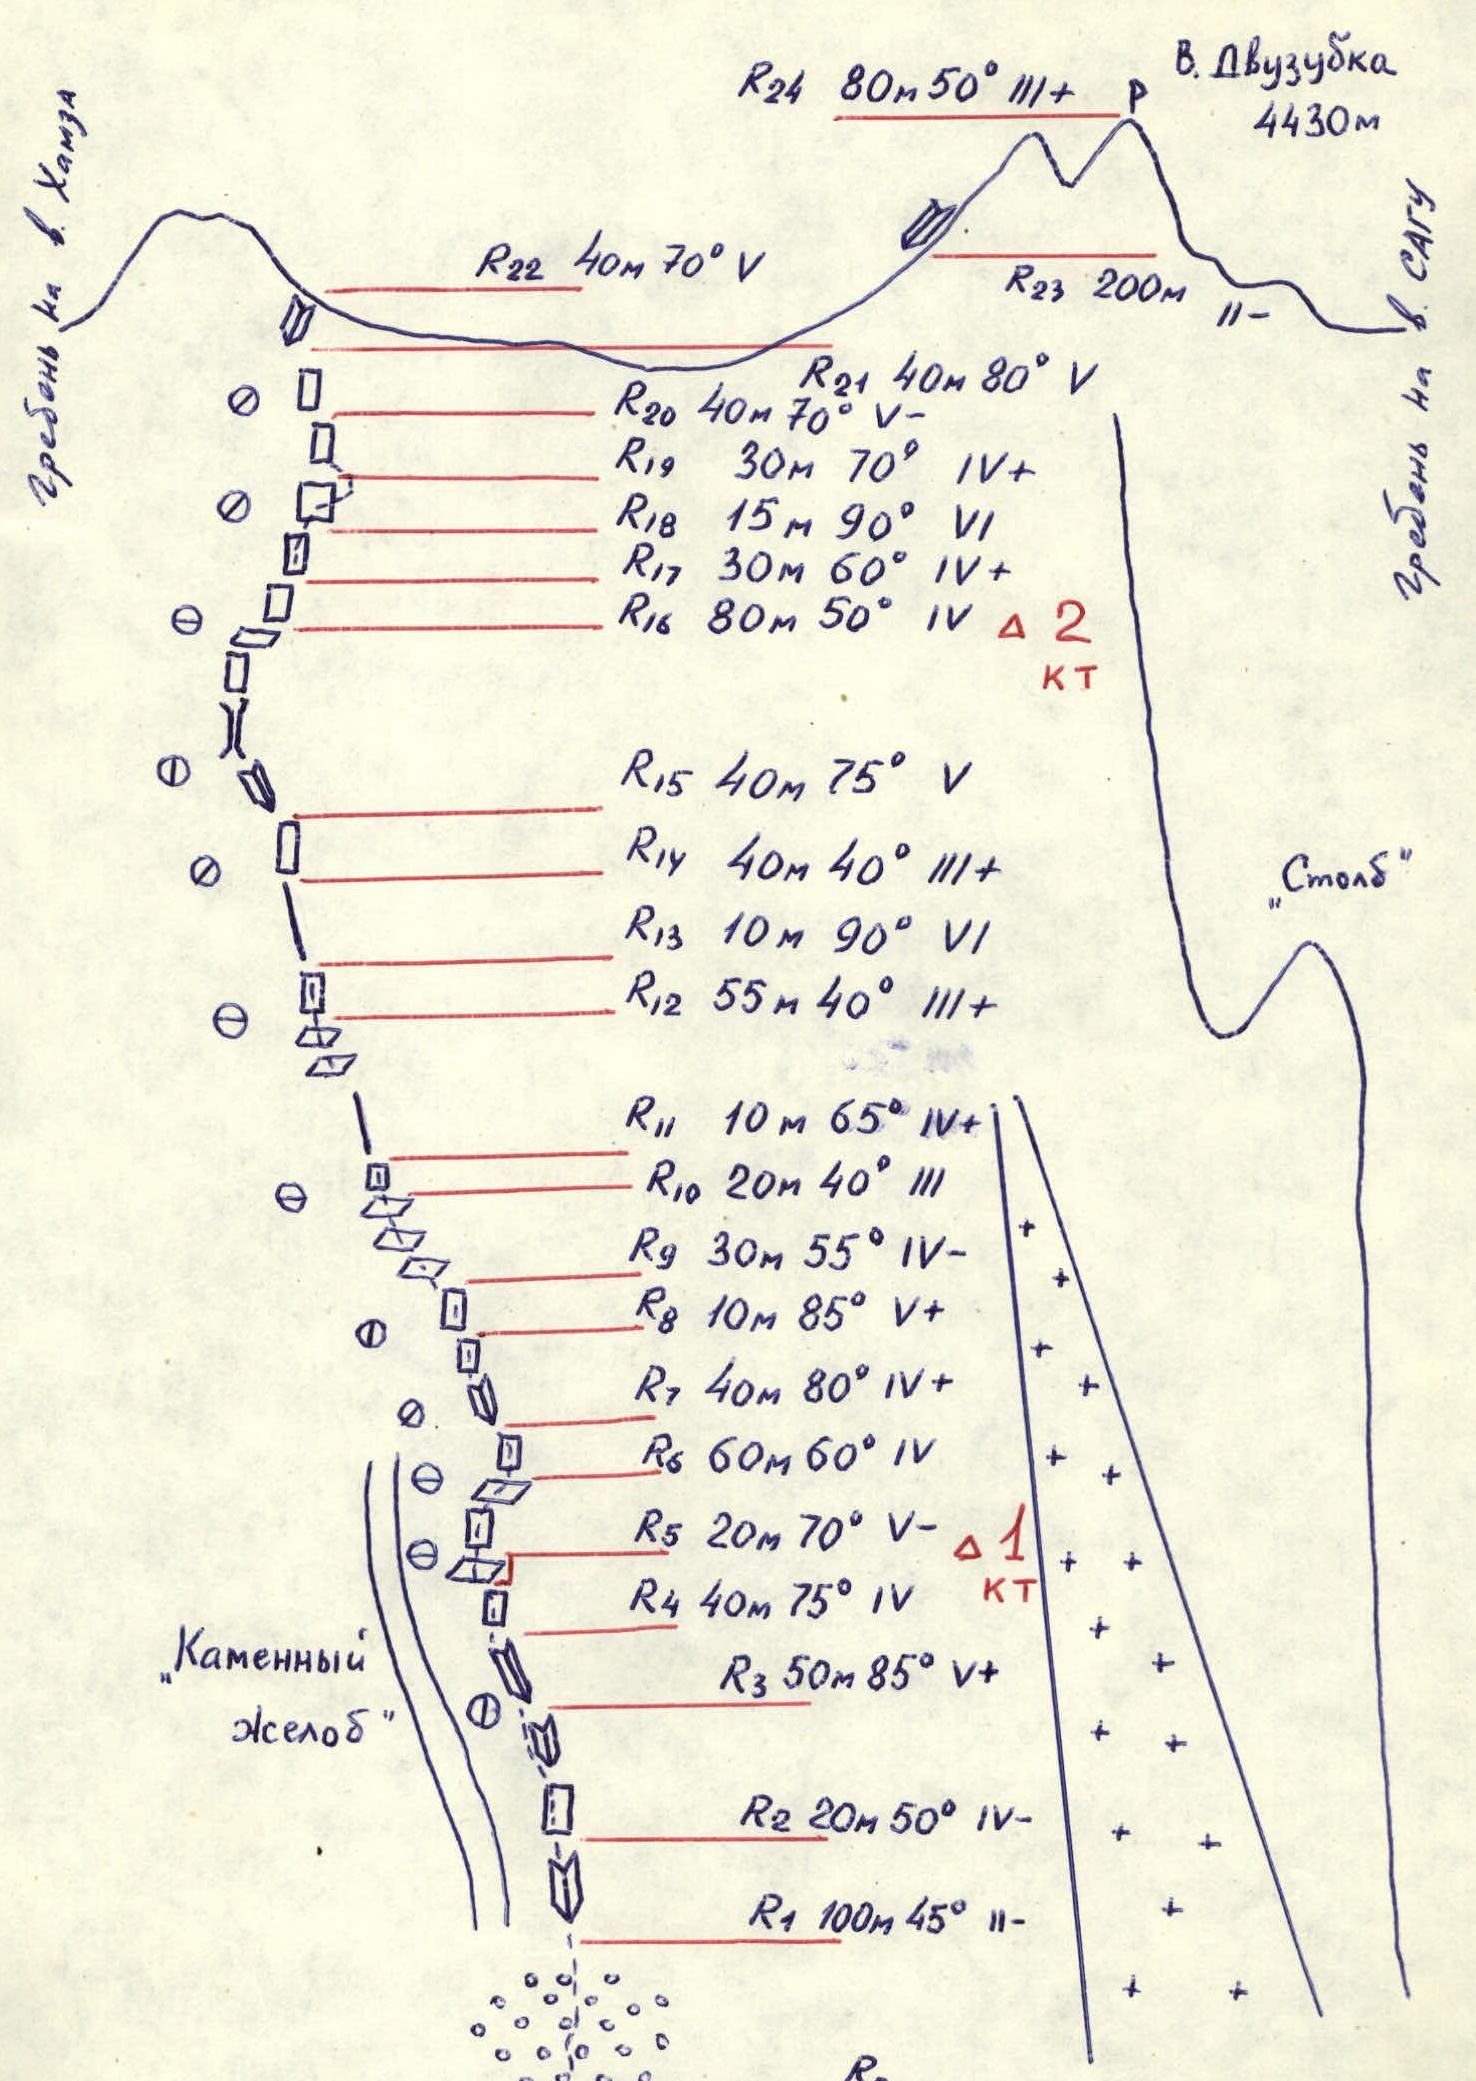 R24 80м 50° III+
Р
В. Двузубка
4430м
Гребень на в. Хамза
R22 40м 70° V
R23 200м II-
Гребень на в. САГУ
R21 40м 80° V
R20 40м 70° V-
R19 30м 70° IV+
R18 15м 90° VI
R17 30м 60° IV+
R16 80м 50° IV Δ 2
КТ
R15 40м 75° V
R14 40м 40° III+
„Столб"
R13 10м 90° VI
R12 55м 40° III+
R11 10м 65° IV+
R10 20м 40° III
R9 30м 55° IV-
R8 10м 85° V+
R7 40м 80° IV+
R6 60м 60° IV
R5 20м 70° V- Δ 1
КТ
R4 40м 75° IV
„Каменный
желоб"
R3 50м 85° V+
R2 20м 50° IV-
R1 100м 45° II-